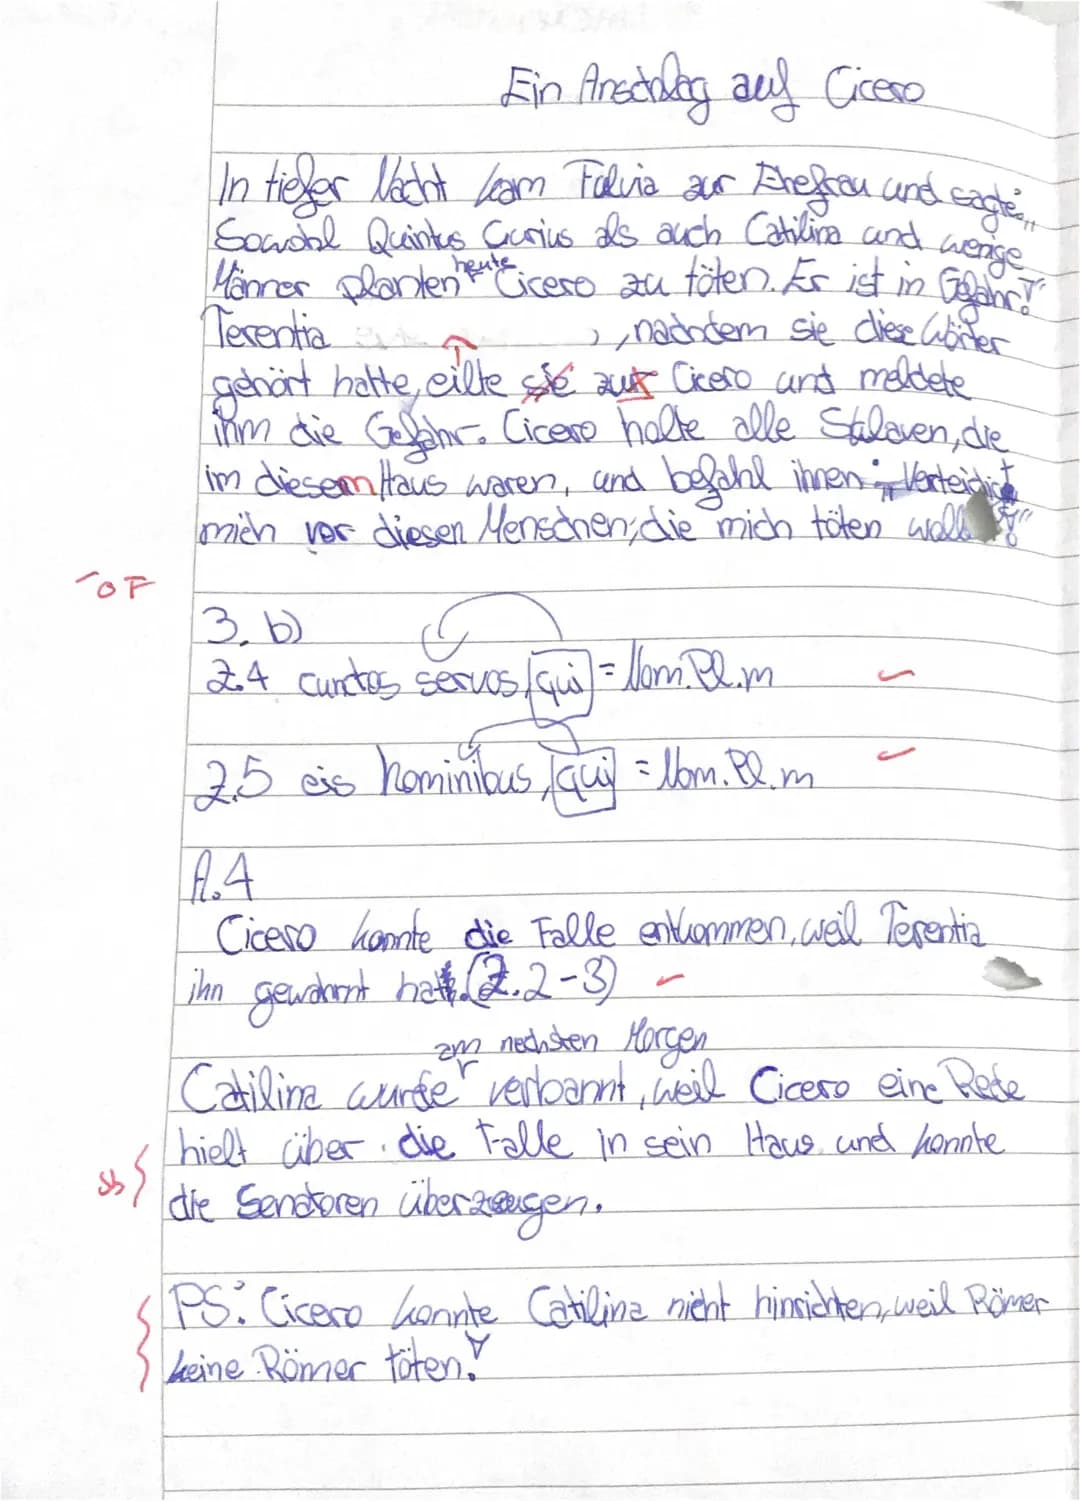 Ein Anschlag auf Cicero
In tiefer Nacht kam Fulvia zur Ehefrau und sagte: „
Sowohl Quintus Curius als auch Catilina und wenige
heute
Männer planten Cicero zu töten. Er ist in Gefahr!"
Terentia , nachdem sie diese Wörter
gehört hatte, eilte sie zur Cicero und meldete
ihm die Gefahr. Cicero holte alle Sklaven, die
im diesem Haus waren, und befahl ihnen: „Verteidigt
mich vor diesen Menschen, die mich töten
-oF
3. b)
Z.4 cunctos servos, qui = Nom. Pl. m
Z.5 eis hominibus, qui = Nom. Pl. m
A.4
Cicero konnte die Falle entkommen, weil Terentia
ihn gewahrnt hat. (Z.2-3)
am nechsten Morgen
Catilina wurde verbannt, weil Cicero eine Rede
hielt über die Falle in sein Haus und konnte
die Senatoren überzeugen.
PS: Cicero konnte Catilina nicht hinrichten, weil Römer
keine Römer töten.